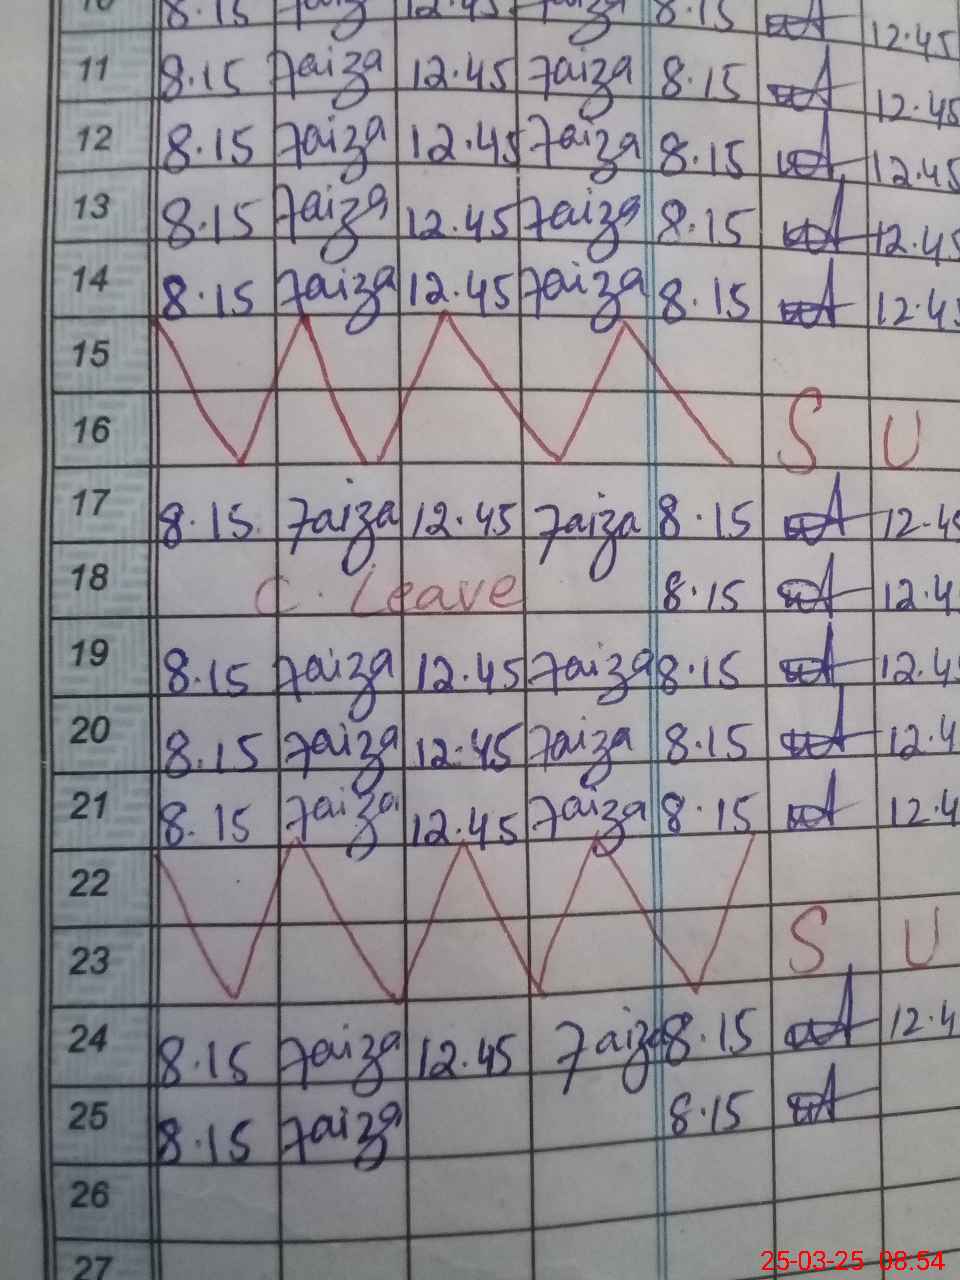 10 8.15 Faiza 12.45 Faiza 8.15 12.45
11 8.15 Faiza 12.45 Faiza 8.15 12.45
12 8.15 Faiza 12.45 Faiza 8.15 12.45
13 8.15 Faiza 12.45 Faiza 8.15 12.45
14 8.15 Faiza 12.45 Faiza 8.15 12.45
15
16 S U
17 8.15 Faiza 12.45 Faiza 8.15 12.45
18 C. Leave 8.15 12.4
19 8.15 Faiza 12.45 Faiza 8.15 12.45
20 8.15 Faiza 12.45 Faiza 8.15 12.4
21 8.15 Faiza 12.45 Faiza 8.15 12.4
22
23 S U
24 8.15 Faiza 12.45 Faiza 8.15 12.4
25 8.15 Faiza 8.15
26
27
25-03-25 08.54